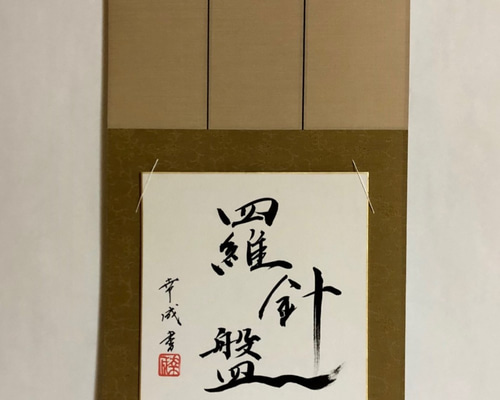 羅針盤
幸成書